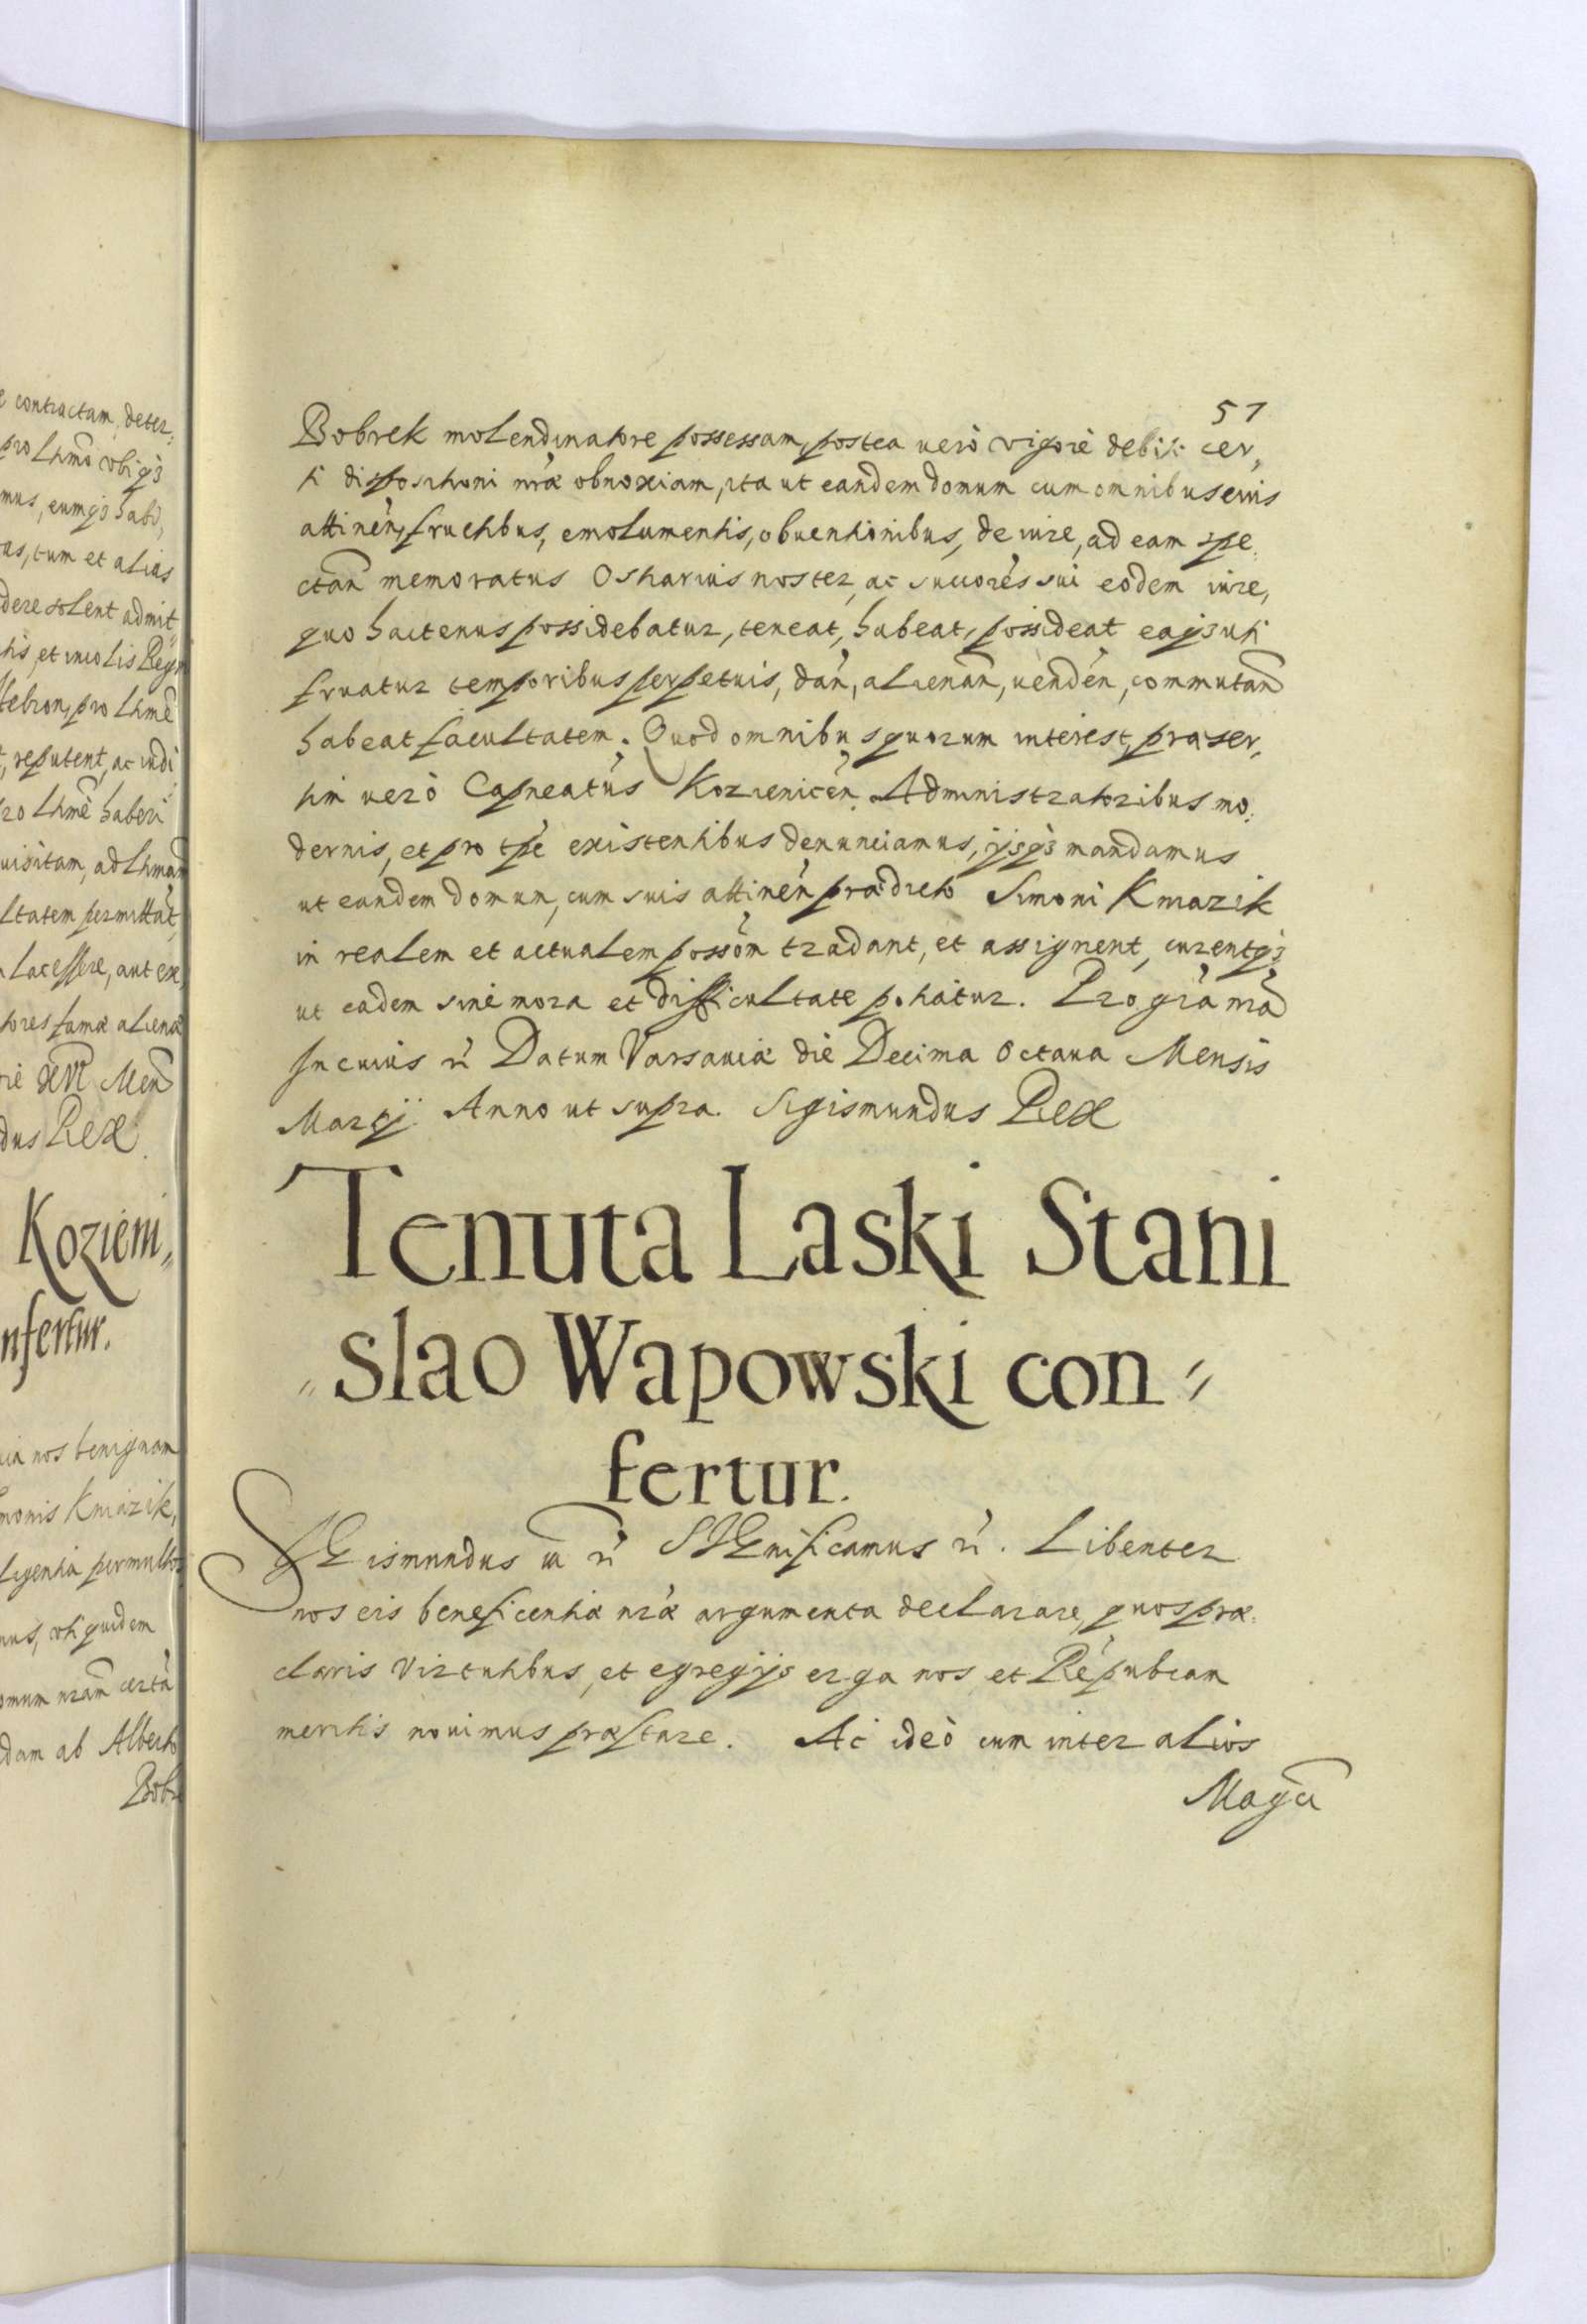 e contractam, deter,
pro lhmo vbi qз
mus, eumqз habi,
as, tum et alias
dere solent admit
tis et incolis Regn
febron, pro lhme
t, reputent, ac iudi
pro lhmè haberi
uisitam, ad lhmam
ltatem permittat,
lacessere, aut ex
tores famæ alienæ
rie XVI Men
dus Rex.
Kozieni„
nfertur.
ia nos benignam
monis Kmázik,
ligentia permultos
nus, vti quidem
omum nram certà
dam ab Alberto
Bobr
57
Bobrek molendinatore possessam, postea verò vigorè debiti cer,
ti dispositioni nræ obnoxiam, ita ut eandem domum cum omnibus eius
attinen, fructibus, emolumentis, obuentionibus, de iure, ad eam spe,
ctan memoratus Ostiarius noster, ac succores sui eodem iure,
quo hactenus possidebatur, teneat, habeat, possideat eaqз uti
fruatur temporibus perpetuis, dan, alienan, uenden, commutan
habeat facultatem. Quod omnibus quorum interest, præser,
tim uerò Capneatus Kozienicen Administratoribus mo,
dernis, et pro tpè existentibus denunciamus, ijsqз mandamus
ut eandem domum, cum suis attinen prædicto Simoni Kmazik
in realem et actualem possom tradant, et assignent, curentqз
ut eadem sine mora et difficultate potiatur. Pro grà mà
In cuius ri Datum Varsauiæ die Decima Octaua Mensis
Marcij. Anno ut supra. Sigismundus Rex
Tenuta Laski Stani
„ slao Wapowski con „
fertur.
SIGismundus iii ri SIGnificamus ri. Libenter
nos eis beneficentiæ nræ argumenta declarare, quos præ,
claris Virtutibus, et egregijs erga nos et Repubcam
meritis nouimus præstare. Ac ideò cum inter alios
Magci